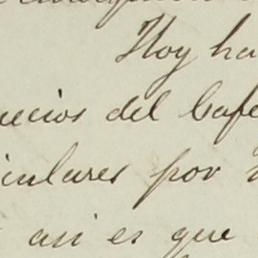 Hoy ha
ecios del Café
iculares por
asi es que